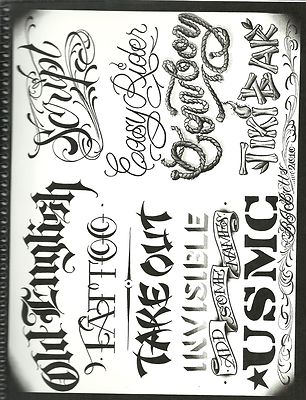 Old English
Script
TATTOO
Easy Rider
TAKE OUT
Cowboy
INVISIBLE
TIKI BAR
ADD SOME NAMES
USMC